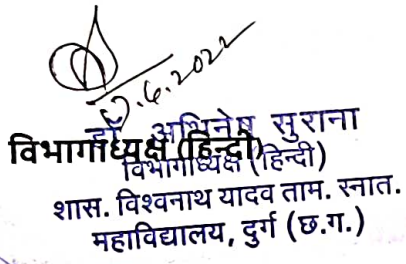 .6.2022
डॉ. अभिनेष सुराना
विभागाध्यक्ष (हिन्दी)
विभागाध्यक्ष (हिन्दी)
शास. विश्वनाथ यादव ताम. स्नात.
महाविद्यालय, दुर्ग (छ.ग.)